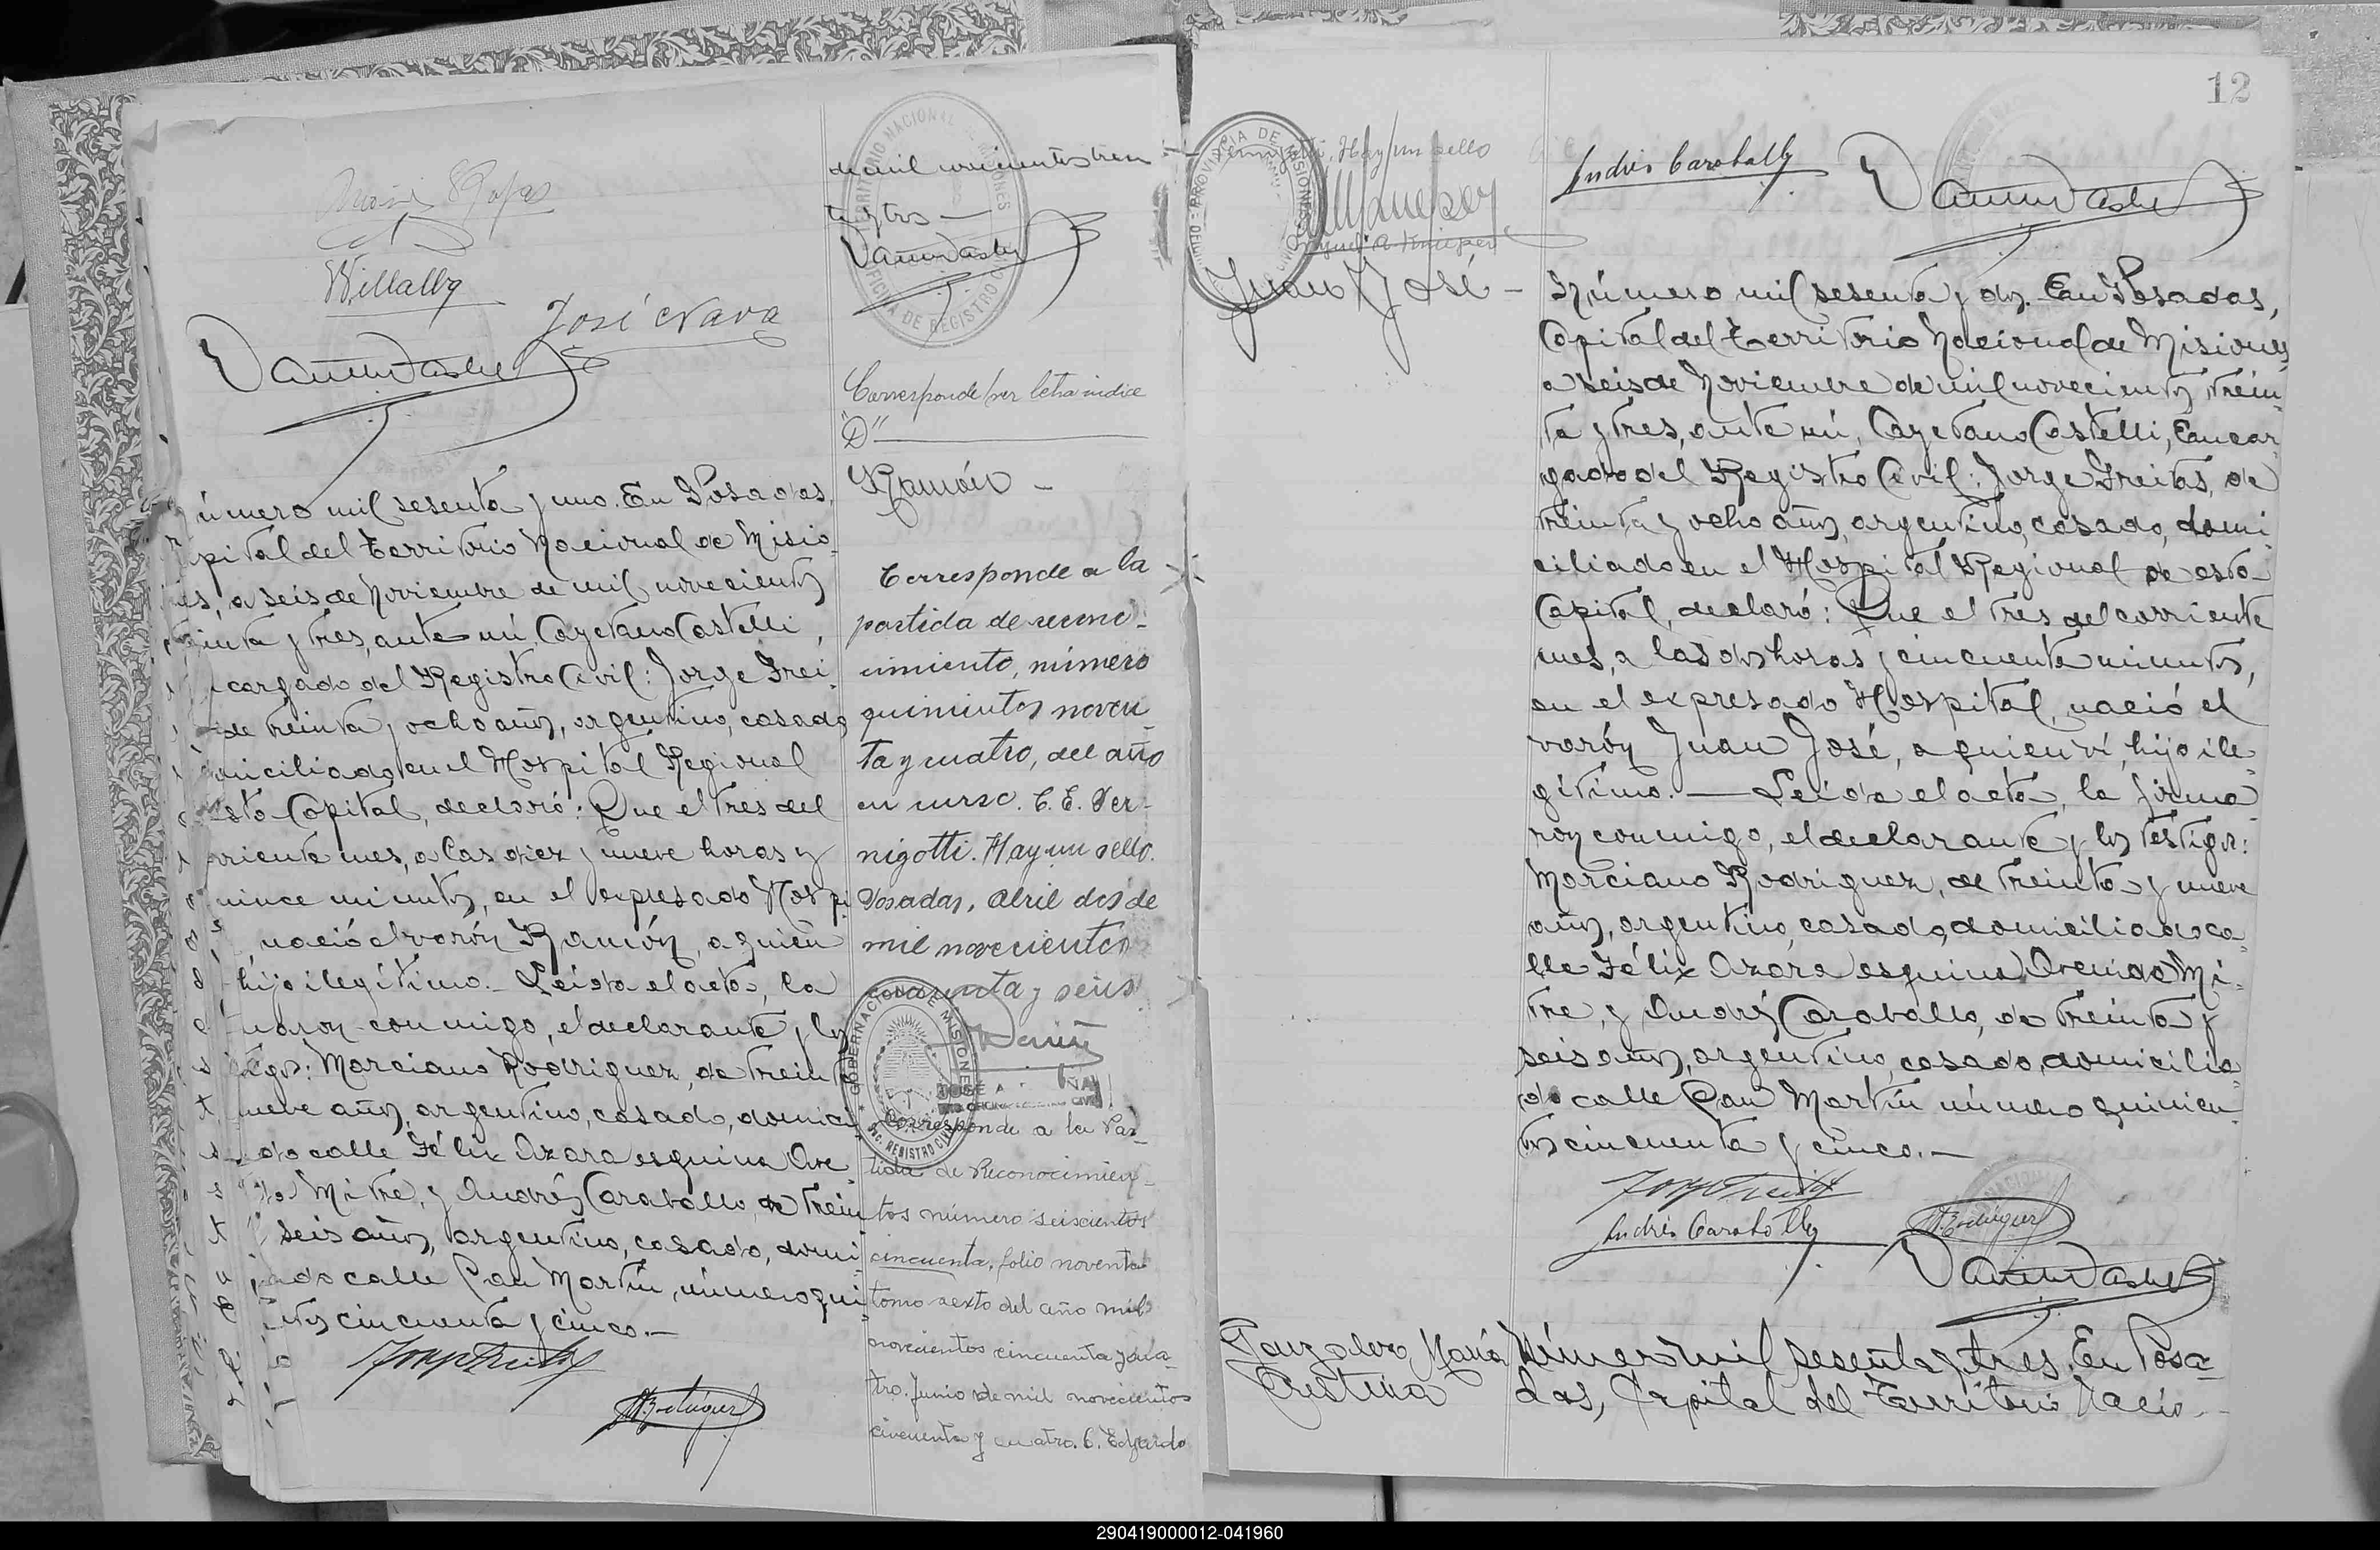 de mil novecientos trein
ta y tres —
Willalby
José Nava
Corresponde ver letra indice
"D"
Ramón —
número mil sesenta y uno. En Posadas,
pital del Territorio Nacional de Misio-
nes, a seis de Noviembre de mil novecientos
treinta y tres, ante mí, Cayetano Castelli,
cargado del Registro Civil: Jorge Frei-
de treinta y ocho años, argentino, casado,
miciliado, en el Hospital Regional
esta Capital, declaró: Que el tres del
rriente mes, a las diez y nueve horas y
quince minutos, en el expresado Hospi
nació el varón Ramón, a quien
hijo ilegítimo.— Leída el acta, la
maron conmigo, el declarante y los
tigos: Marciano Rodriguez, de treint
nueve años, argentino, casado, domici
do calle Félix Azara esquina Ave
Mitre, y Andrés Caraballo, de trein
seis años, argentino, casado, domi
ado calle San Martín, número qui
ntos cincuenta y cinco.—
Corresponde a la
partida de recono-
cimiento, número
quinientos noven-
ta y cuatro, del año
en curso. C. E. Ver-
nigotti. Hay un sello.
Posadas, Abril dos de
mil novecientos
cuarenta y seis
GOBERNACION DE MISIONES
Corresponde a la Par-
tida de Reconocimien-
tos número seiscientos
cincuenta, folio noventa
tomo sexto del año mil
novecientos cincuenta y cua-
tro. Junio de mil novecientos
cincuenta y cuatro. C. Eduardo
12
Vernigotti. Hay un sello
Andrés Caraballo
Juan José —
Número mil sesenta y dos. En Posadas,
Capital del Territorio Nacional de Misiones
a seis de Noviembre de mil novecientos trein-
ta y tres, ante mí, Cayetano Castelli, Encar-
gado del Registro Civil: Jorge Freitas, de
treinta y ocho años, argentino, casado, domi-
ciliado en el Hospital Regional de esta
Capital, declaró: Que el tres del corriente
mes, a las dos horas y cincuenta minutos,
en el expresado Hospital, nació el
varón Juan José, a quien ví, hijo ile-
gítimo. — Leída el acta, la firma-
ron conmigo, el declarante y los testigos:
Marciano Rodriguez, de treinta y nueve
años, argentino, casado, domiciliado ca-
lle Félix Azara esquina Avenida Mi-
tre, y Andrés Caraballo, de treinta y
seis años, argentino, casado, domicilia-
do calle San Martín número quinien-
tos cincuenta y cinco.—
Andrés Caraballo
MRodriguez
Gonzalez, María
Cristina
Número mil sesenta y tres. En Posa-
das, Capital del Territorio Nacio-
290419000012-041960